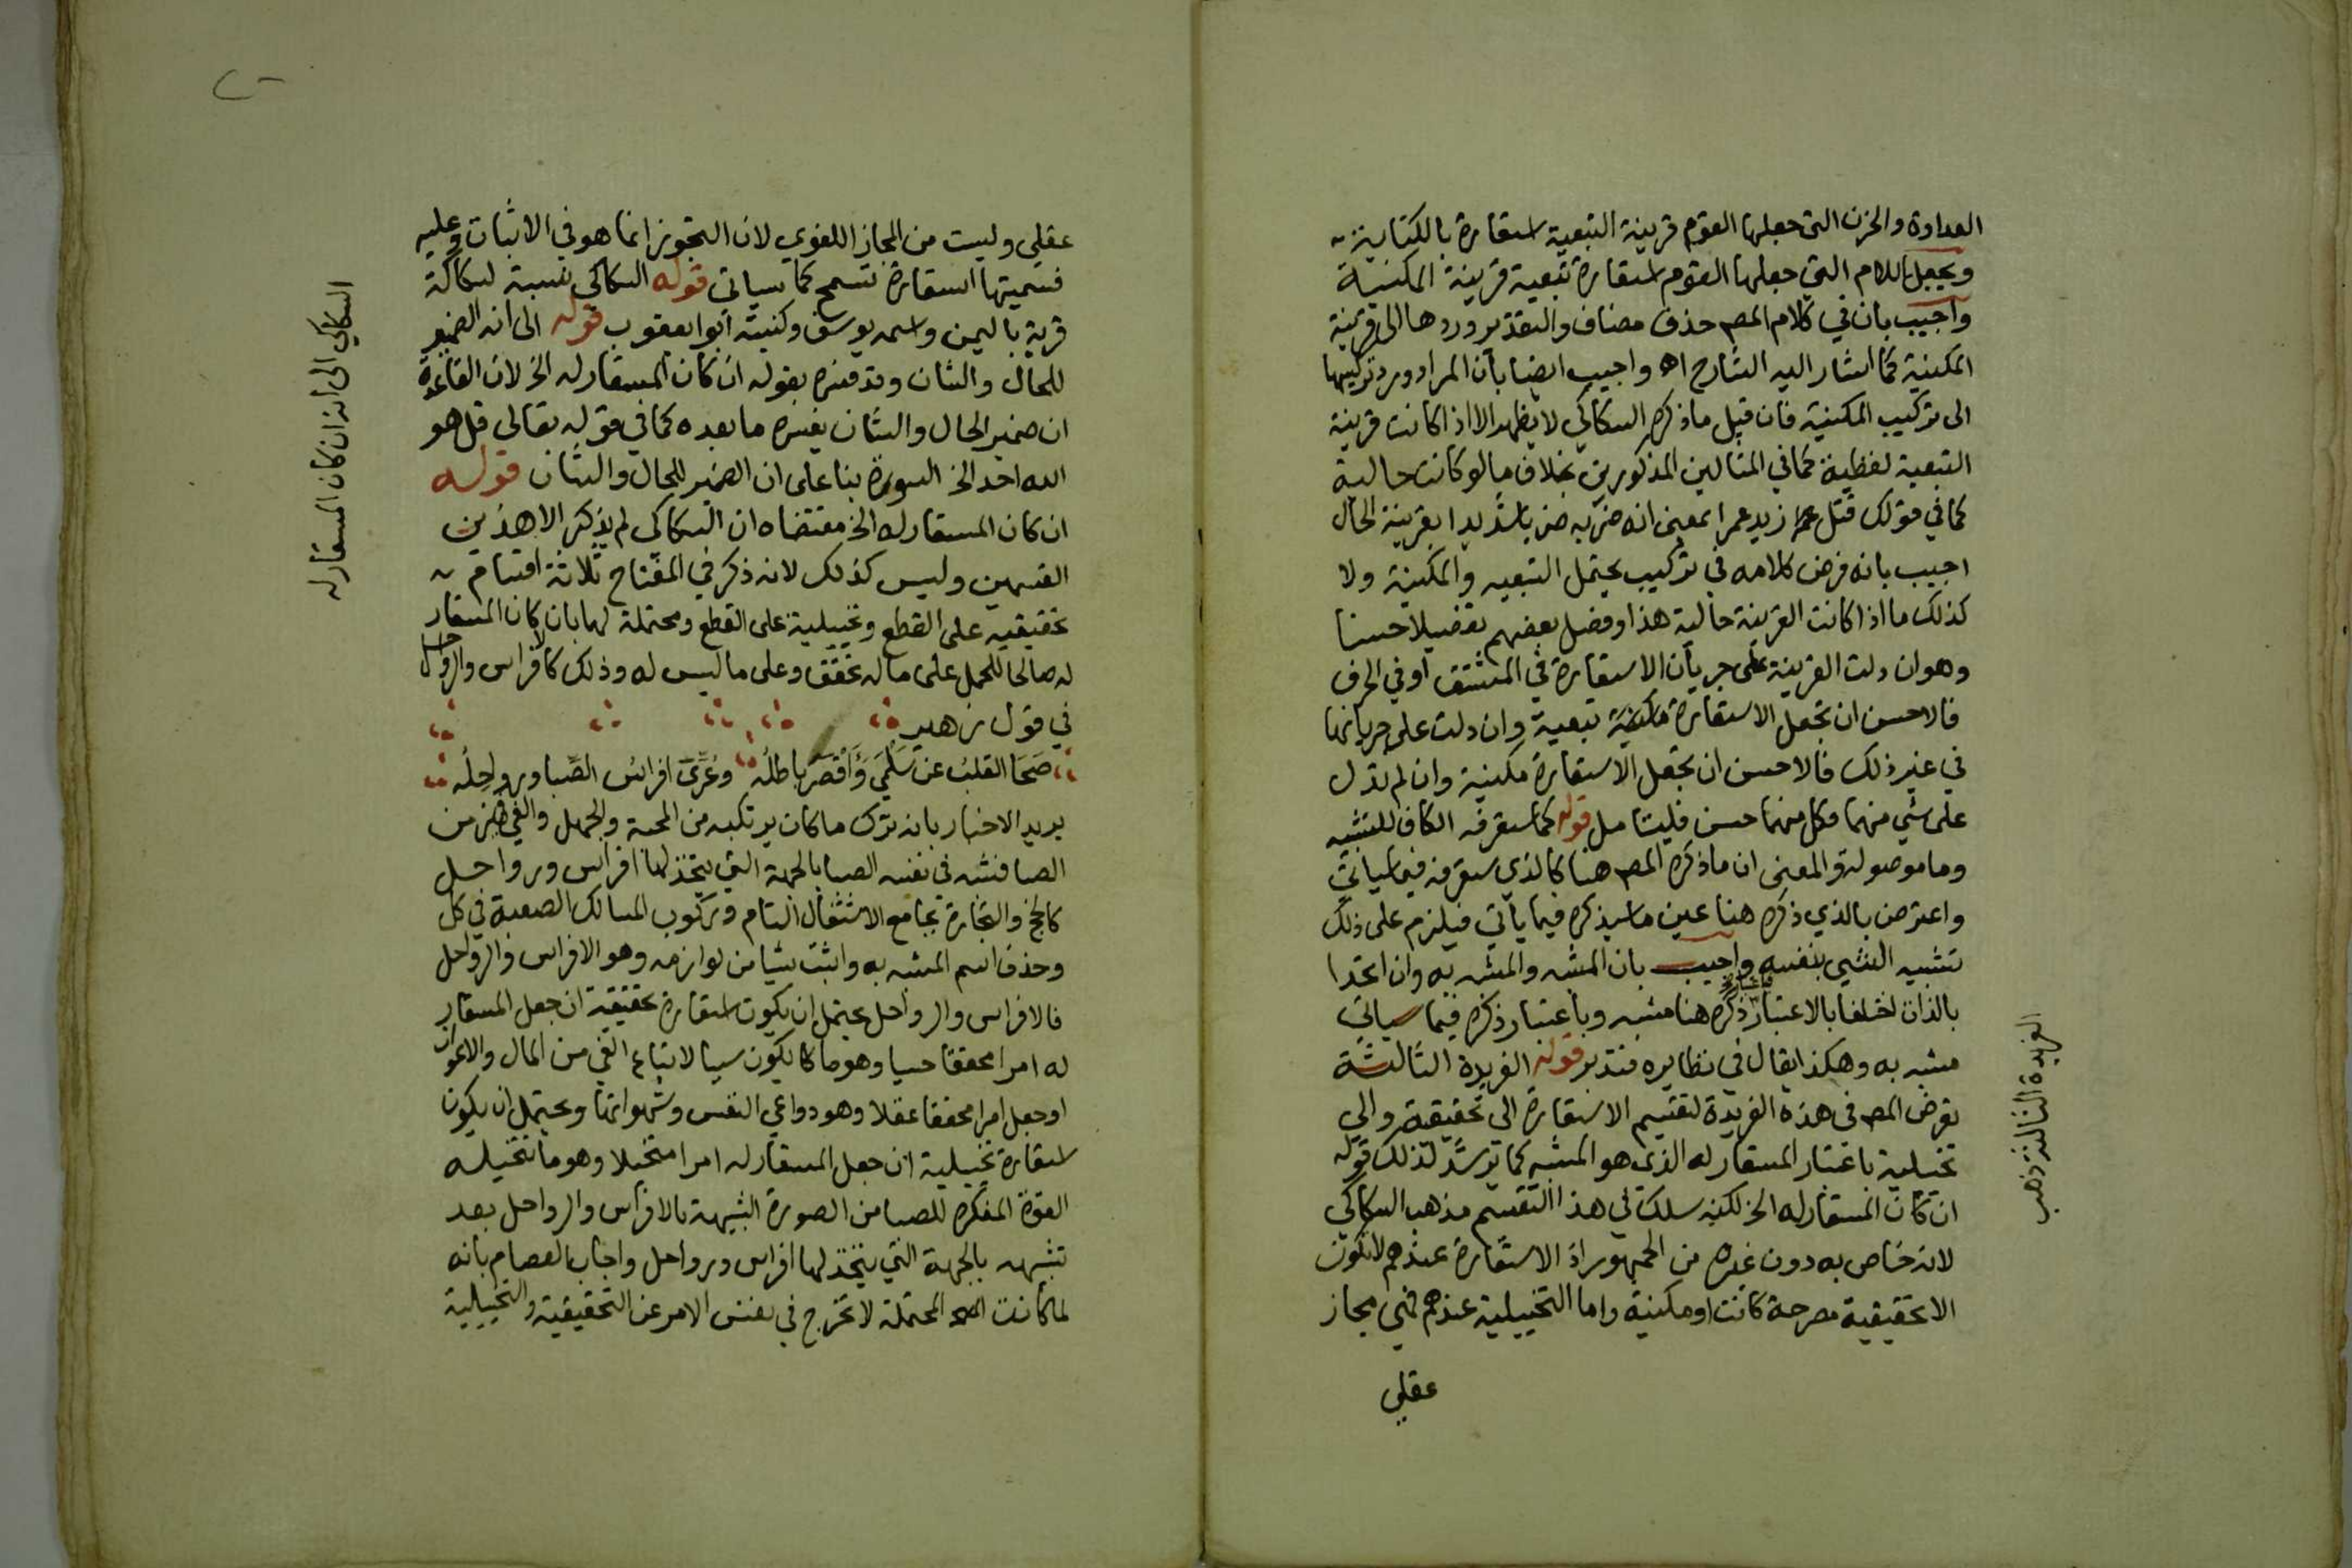 العداوة والحزن التي جعلها القوم قرينة التبعية استعارة بالكناية
ويجعل اللام التي جعلها القوم استعارة تبعية قرينة المكنية
واجيب بان في كلام المصـ حذف مضاف والتقدير وردها الى قرينة
المكنية كما اشار اليه الشارح اهـ واجيب ايضا بان المراد ورد تركيبها
الى تركيب المكنية فان قيل ماذكره السكاكي لا يظهر الا اذا كانت قرينة
التبعية لفظية كما في المثالين المذكورين بخلاف ما لو كانت حالية
كما في قولك قتل زيد عمرا بمعنى انه ضربه ضربا شديدا بقرينة الحال
اجيب بانه فرض كلامه في تركيب يحتمل التبعيه والمكنية ولا
كذلك ما اذا كانت القرينة حالية هذا وفصل بعضهم تفصيلا حسنا
وهو ان دلت القرينة على جريان الاستعارة في المشتق او في الحرف
فالاحسن ان تجعل الاستعارة تبعية وان دلت على جريانها
في غير ذلك فالاحسن ان تجعل الاستعارة مكنية وان لم تدل
على شي منهما فكل منهما حسن فليتامل قوله كما ستعرفه الكاف للتشبيه
وما موصولة والمعنى ان ما ذكره المصـ هنا كالذي ستعرفه فيما سياتي
واعترض بالذي ذكره هنا عين ما سيذكره فيما يأتي فيلزم على ذلك
تشبيه الشي بنفسه واجيب بان المشبه والمشبه به وان اتحدا
بالذات اختلفا بالاعتبار فباعتبار ذكره هنا مشبه وباعتبار ذكره فيما سياتي
مشبه به وهكذا يقال في نظايره فتدبر قوله الفريدة الثالثة
تعرض المصـ في هذه الفريدة لتقسيم الاستعارة الى تحقيقية والى
تخييلية باعتبار المستعار له الذي هو المشبه كما يرشد لذلك قوله
ان كان المستعار له الخ لكنه سلك في هذا التقسيم مذهب السكاكي
لانه خاص به دون غيره من الجمهور اذ الاستعارة عندهم لا تكون
الا تحقيقية مصرحة كانت او مكنية واما التخييلية عندهم فهي مجاز
عقلي
الفريدة الثالثة ذهب
عقلي وليست من المجاز اللغوي لان التجوز انما هو في الاثبات وعليه
فتسميتها استعارة تسمح كما سياتي قوله السكاكي نسبة لسكاكة
قرية باليمن واسمه يوسف وكنيته ابوا يعقوب قوله الى انه الضمير
للحال والشان وقد فسره بقوله ان كان المستعار له الخ لان القاعدة
ان ضمير الحال والشان يفسره ما بعده كما في قوله تعالى قل هو
الله احد الخ السورة بنا على ان الضمير للحال والشان قوله
ان كان المستعار له الخ مقتضاه ان السكاكي لم يذكر الا هذين
القسمين وليس كذلك لانه ذكر في المفتاح ثلاثة اقسام
تحقيقيه على القطع وتخييلية على القطع ومحتملة لهما بان كان المستعار
له صالحا للحمل على ما له تحقق وعلى ما ليس له وذلك كالافراس والرواحل
في قول زهير
صَحَا القلبُ عن سَلْمَى وَأَقْصَرَ باطلُه وعُرِّىَ افراسُ الصِّبا ورواحِلُه
يريد الاخبار بانه ترك ما كان يرتكبه من المحبة والجهل والغي في زمن
الصبا فشبه في نفسه الصبا بالجهة التي يتخذ لها افراس ورواحل
كالحج والتجارة بجامع الاشتغال التام وركوب المسالك الصعبة في كل
وحذف اسم المشبه به واثبت شيا من لوازمه وهو الافراس والرواحل
فالافراس والرواحل يحتمل ان يكون استعارة تحقيقية ان جعل المستعار
له امرا محققا حسيا وهو ما كان يكون سببا لاتباع الغي من المال والاعوان
او جعل امرا محققا عقلا وهو دواعي النفس وشهواتها ويحتمل ان يكون
استعارة تخييلية ان جعل المستعار له امرا متخيلا وهو ما تتخيله
القوة المفكرة للصبا من الصورة الشبيهة بالافراس والرواحل بعد
تشبيهه بالجهة التي يتخذ لها افراس ورواحل واجاب العصام بانه
لما كانت المحتملة لا تخرج في نفس الامر عن التحقيقية والتخييلية
السكاكي الى انه ان كان المستعار له